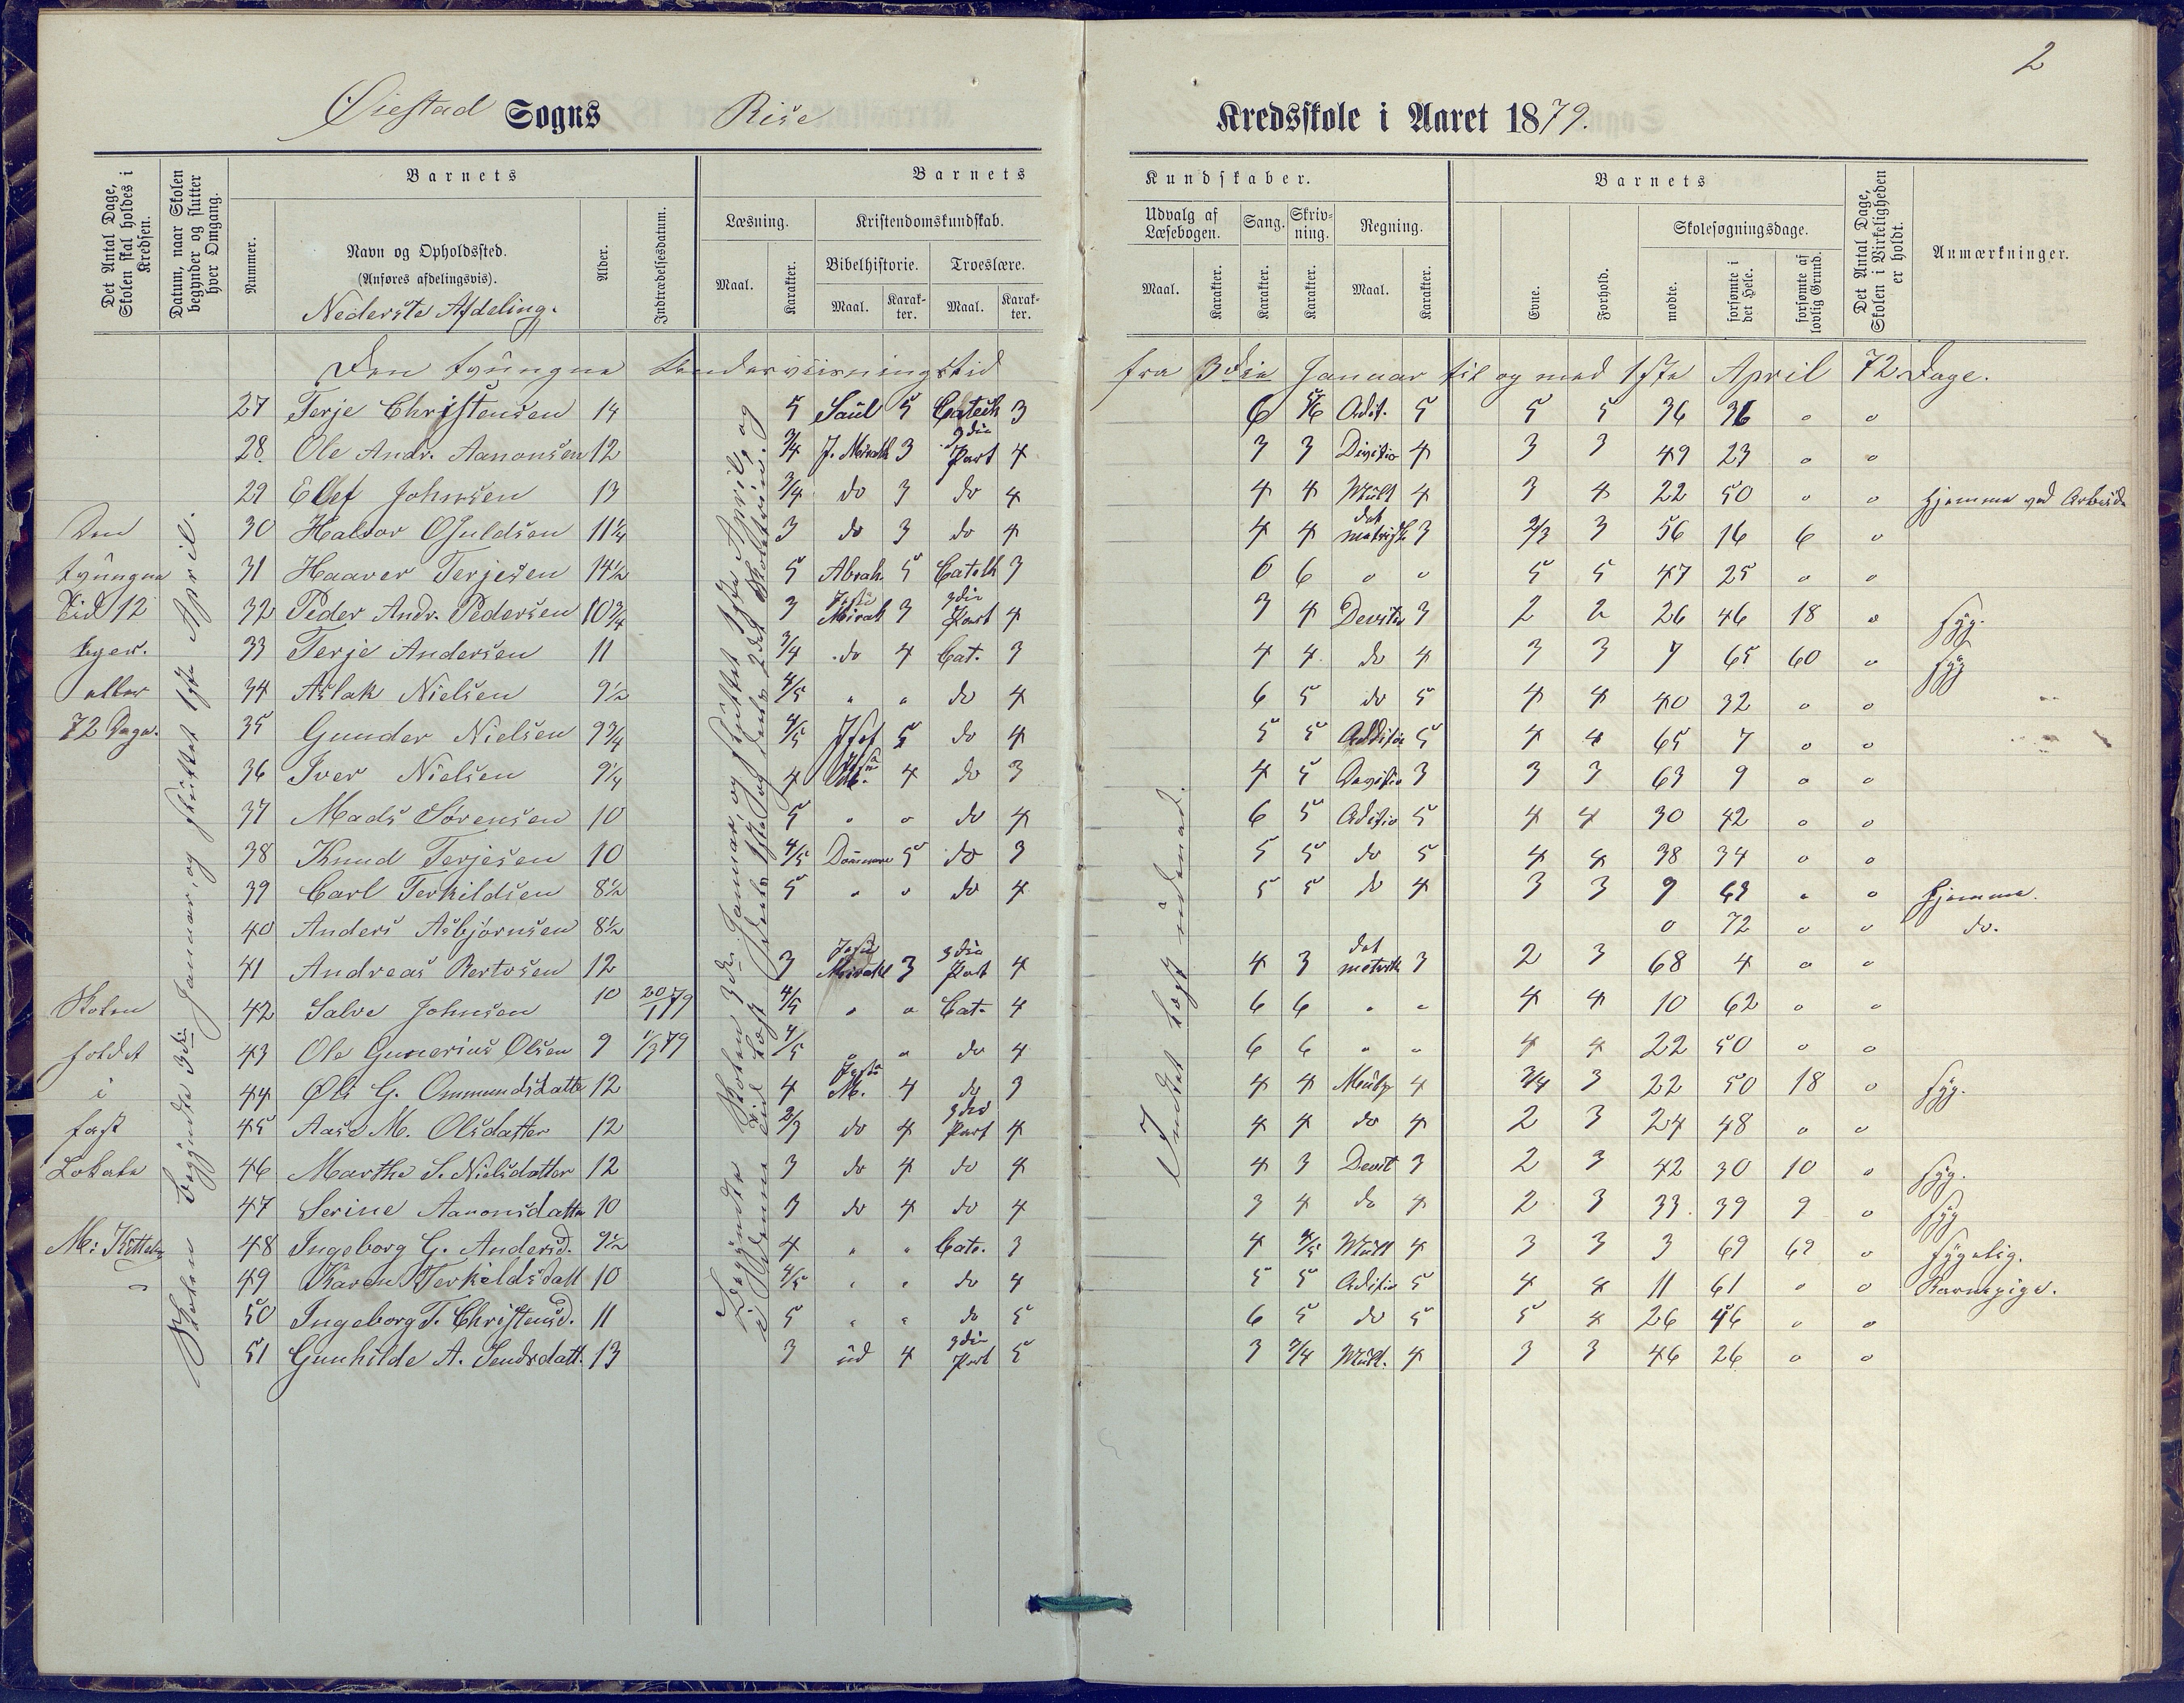 2
Øiestad Sogns Rise Kredsskole i Aaret 1879.
Det Antal Dage, Skolen skal holdes i Kredsen.
Datum, naar Skolen begynder og slutter hver Omgang.
Nummer.
Barnets
Navn og Opholdssted.
(Anføres afdelingsvis).
Nederste Afdeling.
Alder.
Indtrædelsesdatum.
Barnets Kundskaber.
Læsning.
Maal.
Karakter.
Kristendomskundskab.
Bibelhistorie.
Maal.
Karakter.
Troeslære.
Maal.
Karakter.
Udvalg af Læsebogen.
Maal.
Karakter.
Sang.
Karakter.
Skrivning.
Karakter.
Regning.
Maal.
Karakter.
Barnets
Evne.
Forhold.
Skolesøgningsdage.
mødte.
forsømte i det Hele.
forsømte af lovlig Grund.
Det Antal Dage, Skolen i Virkeligheden er holdt.
Anmærkninger.
Den tvungne Undervisningstid fra 3die Januar til og med 1ste April 72 Dage.
27 Terje Christensen 14 5 Saul 5 Catech 3 6 5/6 Adit. 5 5 5 36 36 0 0
28. Ole Andr. Aanonsen 12 3/4 3 3die Part 4 3 3 Divisio 4 3 3 49 23 0 0
29 Ellef Johnsen 13 3/4 do 3 do 4 4 4 Mult 4 3 4 22 50 0 0 Hjemme ved Arbeide
30 Halvor Gjuldsen 11 1/4 3 do 3 do 4 4 4 det 3 2/3 3 56 16 6 0
31 Haaver Terjesen 14 1/2 5 Abrah. 5 Catech 3 6 6 0 0 5 5 47 25 0 0
32 Peder Andr. Pedersen 10 3/4 3 3 3die Part 4 3 4 3 2 2 26 46 18 0 syg.
33 Terje Andersen 11 3/4 do 4 Cat. 3 4 4 do 4 3 3 7 65 60 0 syg
34 Aslak Nielsen 9 1/2 4/5 " " do 4 6 5 do 5 4 4 40 32 0 0
35 Gunder Nielsen 9 3/4 4/5 5 do 4 5 5 Additio 5 4 4 65 7 0 0
36 Iver Nielsen 9 1/4 4 4 do 3 4 5 3 3 3 63 9 0 0
37 Mads Sørensen 10 5 " " do 4 6 5 Aditio 5 4 4 30 42 0 0
38 Knud Terjesen 10 4/5 Dommere 5 do 3 5 5 do 5 4 4 38 34 0 0
39 Carl Terkildsen 8 1/2 5 " " do 4 5 5 do 4 3 3 9 63 " 0 Hjemme.
40 Anders Asbjørnsen 8 1/2 0 72 0 0 do.
41 Andreas Bertosen 12 3 3 3die Part 4 4 3 det 3 2 3 68 4 0 0
42 Salve Johnsen 10 20/1 79 4/5 " " Cat. 4 6 6 " " 4 4 10 62 0 0
43 Ole Gunerius Olsen 9 1/3 79 4/5 " " do 4 6 6 " " 4 4 22 50 0 0
44 G. Ommundsdatter 12 4 M. 4 do 3 4 4 4 3/4 3 22 50 18 0 syg.
45 Aase M. Olsdatter 12 2/3 do 4 3die Part 4 4 4 do 4 2 3 24 48 0 0
46 Marthe S. Nielsdatter 12 3 do 4 do 4 4 3 3 2 3 42 30 10 0 syg.
47 Serine Aanonsdatter 10 3 do 4 do 4 3 4 do 4 2 3 33 39 9 0 syg
48 Ingeborg G. Andersd. 9 1/2 4 " " Cate. 3 4 4/5 Mult 4 3 3 3 69 69 0 sygelig.
49 Karen Terkildsdatt 10 4/5 " " do 4 5 5 Aditio 5 4 4 11 61 0 0 Barnepige.
50 Ingeborg T. Christensd. 11 5 " " do 5 6 5 do 5 5 4 26 46 0 0
51 Gunhilde A. 13 3 ud 4 3die Part 5 3 3/4 Mult. 4 3 3 46 26 0 0
Den
tvungne
Tid 12
Uger.
eller
72 Dage.
Skolen
holdt
i
fast
Lokale
M: Kittelsen
Skolen begyndte 3die Januar, og sluttet 1ste April.
Begyndte Skolen 3die Januar, og sluttet 1ste April, og
Intet læst udenad.